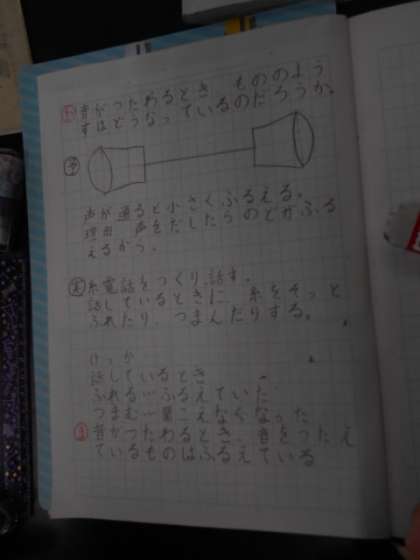 か 音がつたわるとき もののよう
すはどうなっているのだろうか。
予
声が通ると小さくふるえる。
理由 声をだしたらのどがふる
えるから。
実 糸電話をつくり、話す。
話しているときに、糸をそっと
ふれたり、つまんだりする。
けっか
話しているとき
ふれる…ふるえていた
つまむ…聞こえなくなった
ま 音がつたわるとき、音をつたえ
ているものはふるえている